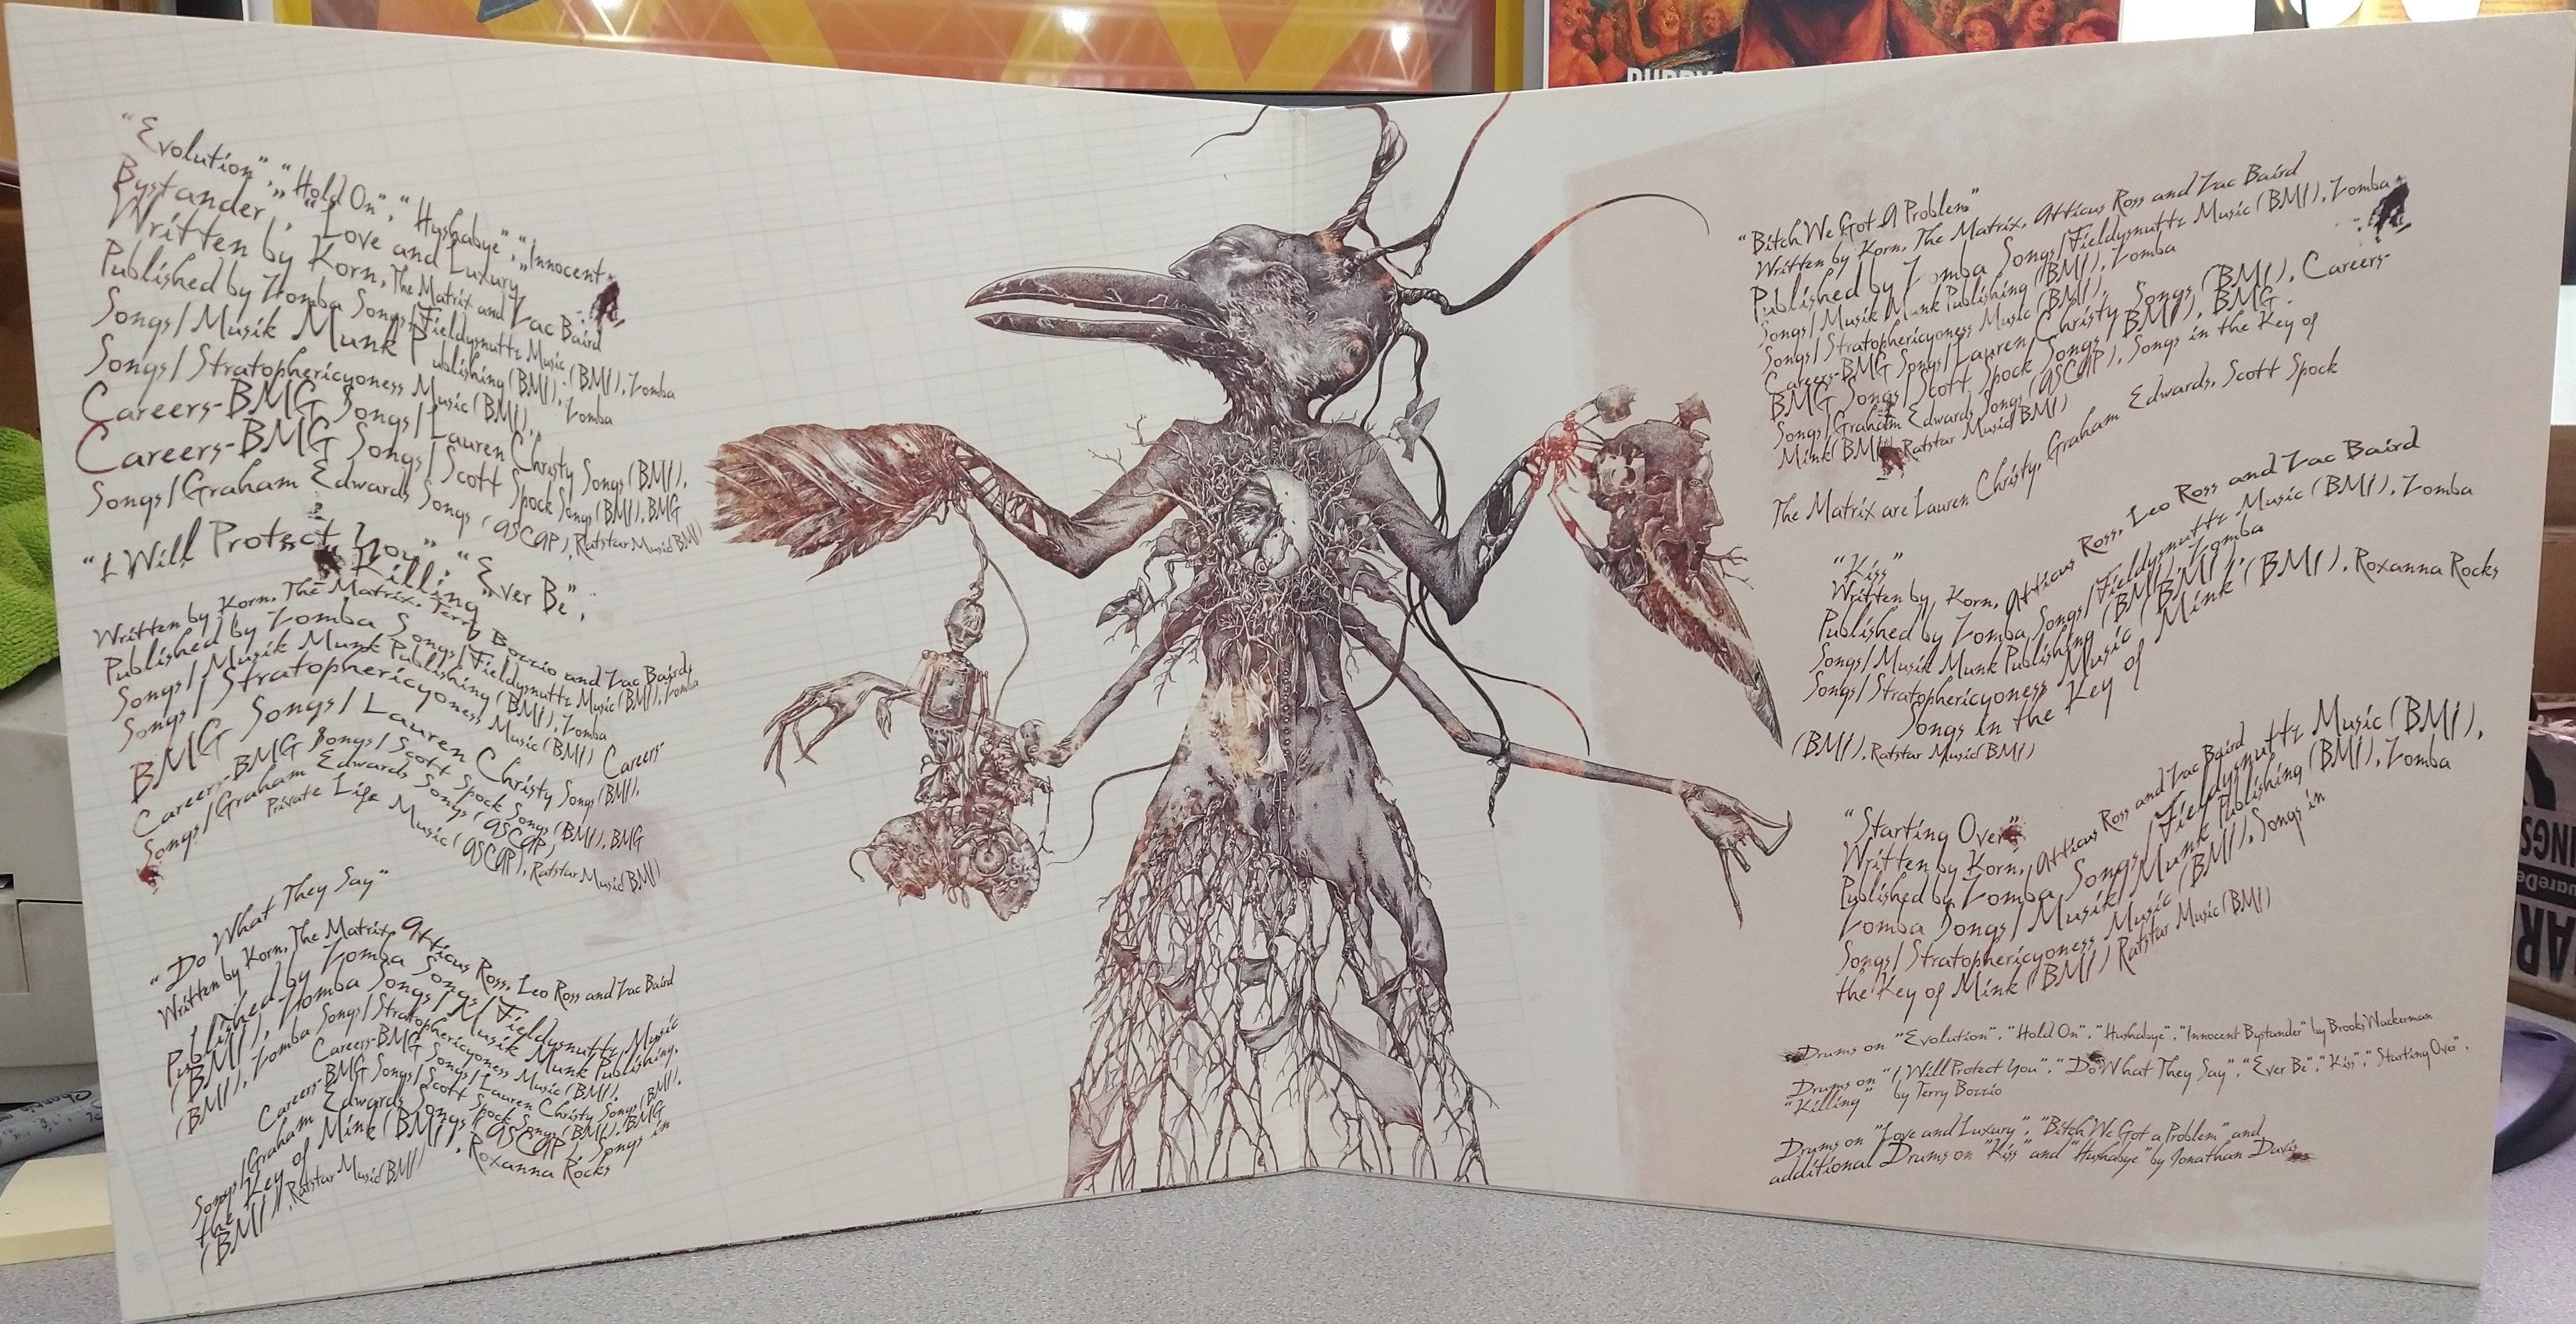 "Evolution", "Hold On", "Hushabye", "Innocent
Bystander", "Love and Luxury
Written by Korn, The Matrix and Zac Baird
Published by Zomba Songs/Fieldysnuttz Music (BMI), Zomba
Songs/Musik Munk Publishing (BMI), Zomba
Songs/Stratophericyoness Music (BMI),
Careers-BMG Songs/Lauren Christy Songs (BMI),
Careers-BMG Songs/Scott Spock Songs (BMI), BMG
Songs/Graham Edwards Songs (ASCAP), Ratstar Music BMI)
"I Will Protect You", "Ever Be",
"Killing"
Written by Korn, The Matrix, Terry Bozzio and Zac Baird
Published by Zomba Songs/Fieldysnuttz Music (BMI), Zomba
Songs/Musik Munk Publishing (BMI), Zomba
Songs/Stratophericyoness Music (BMI) Careers-
BMG Songs/Lauren Christy Songs (BMI),
Careers-BMG Songs/Scott Spock Songs (BMI), BMG
Songs/Graham Edwards Songs (ASCAP)
Private Life Music (ASCAP), Ratstar Music BMI)
"Do What They Say"
Written by Korn, The Matrix, Atticus Ross, Leo Ross and Zac Baird
Published by Zomba Songs/Fieldysnuttz Music
(BMI), Zomba Songs/Musik Munk Publishing,
(BMI), Zomba Songs/Stratophericyoness Music (BMI),
Careers-BMG Songs/Lauren Christy Songs (BMI),
Careers-BMG Songs/Scott Spock Songs (BMI), BMG
Songs/Graham Edwards Songs (ASCAP), Songs in
the Key of Mink (BMI), Roxanna Rocks
(BMI), Ratstar Music BMI)
"Bitch We Got A Problem"
Written by Korn, The Matrix, Atticus Ross and Zac Baird
Published by Zomba Songs/Fieldysnuttz Music (BMI), Zomba
Songs/Musik Munk Publishing (BMI), Zomba
Songs/Stratophericyoness Music (BMI),
Careers-BMG Songs/Lauren Christy Songs (BMI), Careers-
BMG Songs/Scott Spock Songs (BMI), BMG
Songs/Graham Edwards Songs (ASCAP), Songs in the Key of
Mink (BMI), Ratstar Music BMI)
The Matrix are Lauren Christy, Graham Edwards, Scott Spock
"Kiss"
Written by Korn, Atticus Ross, Leo Ross and Zac Baird
Published by Zomba Songs/Fieldysnuttz Music (BMI), Zomba
Songs/Musik Munk Publishing (BMI), Zomba
Songs/Stratophericyoness Music (BMI),
Songs in the Key of Mink (BMI), Roxanna Rocks
(BMI), Ratstar Music BMI)
"Starting Over"
Written by Korn, Atticus Ross and Zac Baird
Published by Zomba Songs/Fieldysnuttz Music (BMI),
Zomba Songs/Musik Munk Publishing (BMI), Zomba
Songs/Stratophericyoness Music (BMI), Songs in
the Key of Mink (BMI) Ratstar Music (BMI)
Drums on "Evolution", "Hold On", "Hushabye", "Innocent Bystander" by Brooks Wackerman
Drums on "I Will Protect You", "Do What They Say", "Ever Be", "Kiss", "Starting Over",
"Killing" by Terry Bozzio
Drums on "Love and Luxury", "Bitch We Got a Problem" and
additional Drums on "Kiss" and "Hushabye" by Jonathan Davis